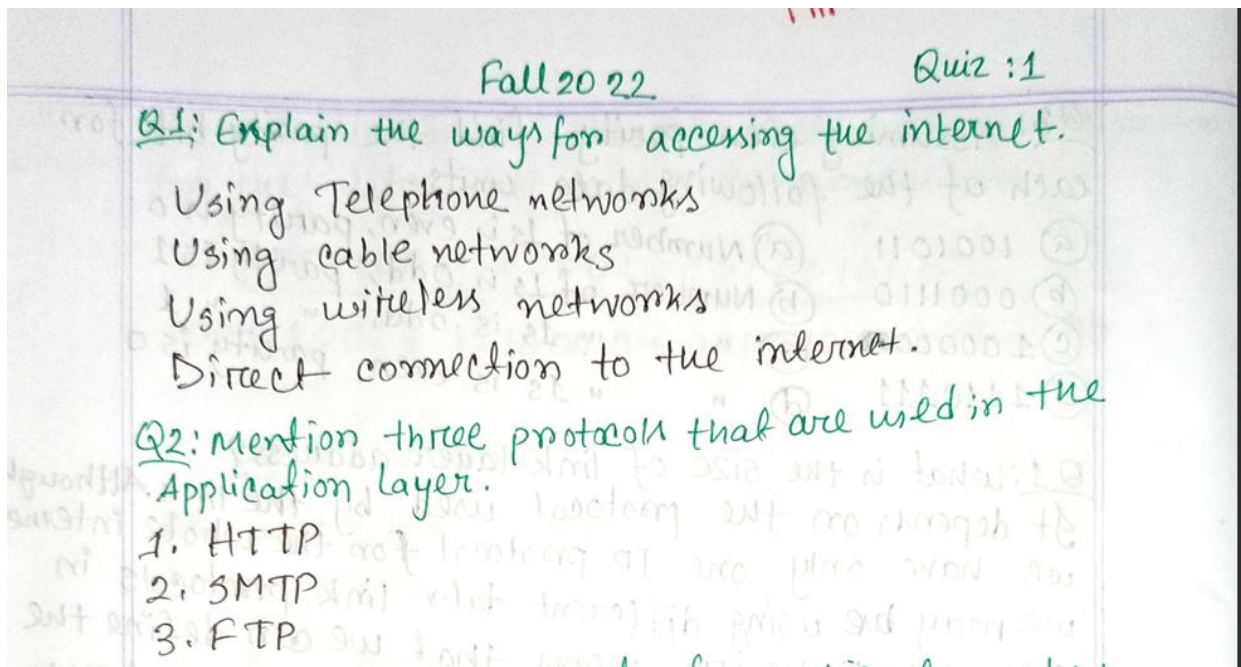 Fall 2022
Quiz : 1
Q1: Explain the ways for accessing the internet.
Using Telephone networks
Using cable networks
Using wireless networks
Direct connection to the internet.
Q2: Mention three protocols that are used in the
Application layer.
1. HTTP
2. SMTP
3. FTP